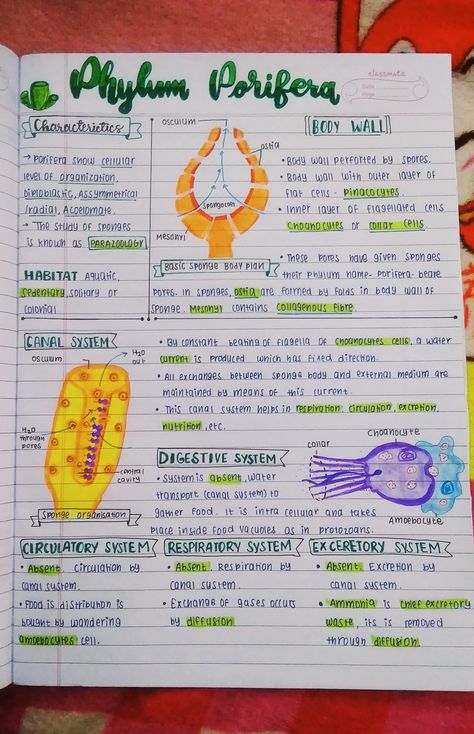 Phylum Porifera
classmate
Date
Page
Characterictics
→ Porifera show cellular
level of organization,
Diploblastic, Assymmetrical
/radial, Acoelomate.
→ The study of sponges
is known as PARAZOOLOGY
HABITAT aquatic,
sedentary, solitary or
colonial
osculum
ostia
spongocoel
Mesohyl
Basic Sponge Body Plan
BODY WALL
• Body wall perforted by spores.
• Body wall with outer layer of
flat cells - pinacocytes.
• Inner layer of flagellated cells
choanocytes or collar cells.
• These pores have given sponges
their phylum name- porifera- beare
pores. In sponges, ostia are formed by folds in body wall of
sponge. Mesohyl contains collagenous fibre
CANAL SYSTEM
osculum
H2O
out
H2O
through
pores
central
cavity
Sponge organisation
• By constant beating of flagella of choanocytes cells, a water
current is produced which has fixed direction.
• All exchanges between sponge body and external medium are
maintained by means of this current.
• This canal system helps in respiration, circulation, excretion,
nutrition, etc.
DIGESTIVE SYSTEM
• System is absent, water
transport (canal system) to
gather food. It is intra cellular and takes
place inside food vacuoles as in protozoans.
Choanocyte
collar
Amoebocyte
CIRCULATORY SYSTEM
• Absent, circulation by
canal system.
• Food is distribution is
bought by wandering
amoebocytes cell.
RESPIRATORY SYSTEM
• Absent. Respiration by
canal system.
• Exchange of gases occurs
by diffusion
EXCERETORY SYSTEM
• Absent. Excretion by
canal system.
• Ammonia is chief excretory
waste, its is removed
through diffusion.